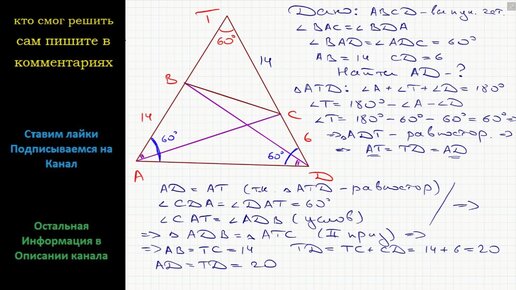 кто смог решить
сам пишите в
комментариях
Ставим лайки
Подписываемся на
Канал
Остальная
Информация в
Описании канала
T
60°
14
B
C
14
6
60°
60°
A
D
Дано: ABCD - выпук. чет.
∠BAC = ∠BDA
∠BAD = ∠ADC = 60°
AB = 14 CD = 6
Найти AD - ?
△ATD: ∠A + ∠T + ∠D = 180°
∠T = 180° - ∠A - ∠D
∠T = 180° - 60° - 60° = 60° ⇒
⇒ △ADT - равностор. ⇒
⇒ AT = TD = AD
AD = AT (т.к. △ATD - равностор)
∠CDA = ∠DAT = 60°
∠CAT = ∠ADB (услов)
⇒
⇒ △ADB = △ATC (II приз) ⇒
⇒ AB = TC = 14 TD = TC + CD = 14 + 6 = 20
AD = TD = 20